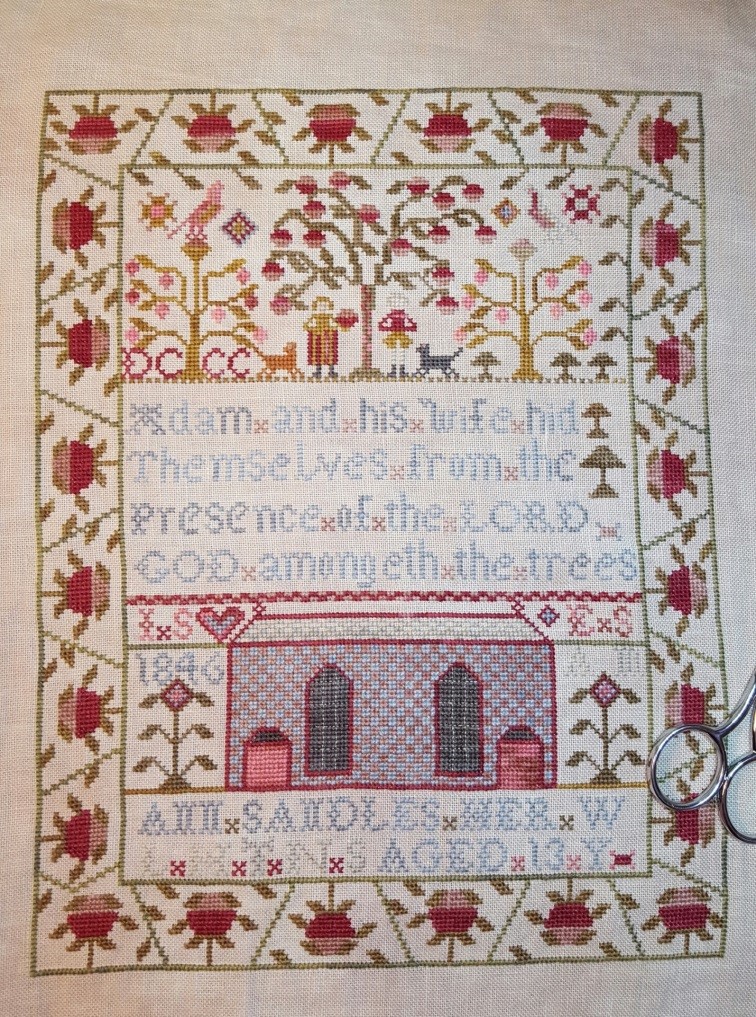 DC CC
Adam x and x his x Wife x hid
Themselves x from x the
Presence x of x the x LORD
GOD x amongeth x the x trees
I x S E x S
1846 A M
ANN x SANDLES x HER x W
L x H x T x N x S AGED x 13 x Y